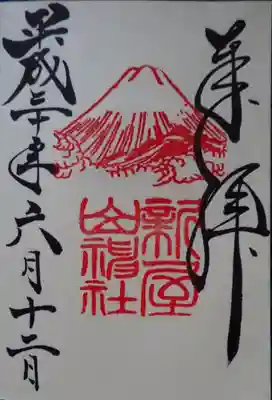 奉拝
新屋
山神社
平成三十年六月十二日